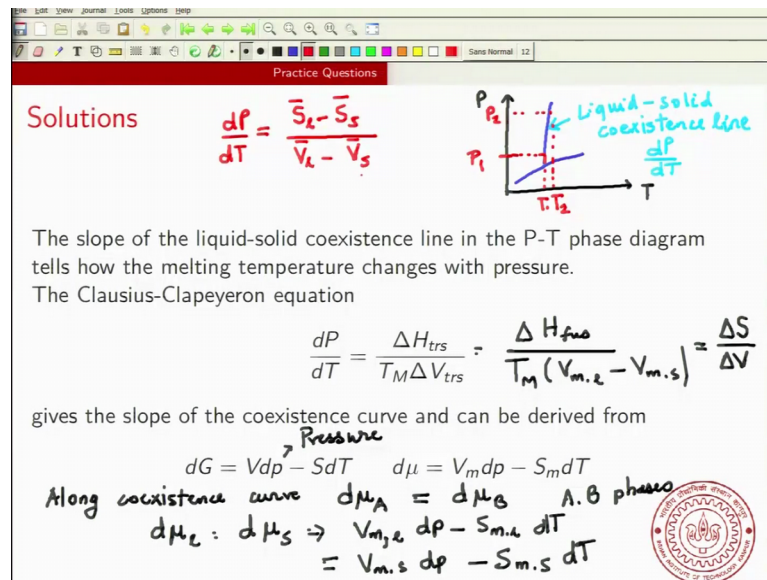 File Edit View Journal Tools Options Help
Sans Normal 12
Practice Questions
Solutions
dP/dT = (S̄ₗ - S̄ₛ)/(V̄ₗ - V̄ₛ)
P
P₂
P₁
T₁ T₂
T
Liquid-solid
coexistence line
dP/dT
The slope of the liquid-solid coexistence line in the P-T phase diagram
tells how the melting temperature changes with pressure.
The Clausius-Clapeyron equation
dP/dT = ΔH_trs/(T_M ΔV_trs) = ΔH_fus/(T_M (V_m.l - V_m.s)) = ΔS/ΔV
gives the slope of the coexistence curve and can be derived from
Pressure
dG = Vdp − SdT dμ = V_m dp − S_m dT
Along coexistence curve dμ_A = dμ_B A.B phases
dμ_l = dμ_s ⇒ V_m,l dp - S_m.l dT
= V_m.s dp - S_m.s dT
INDIAN INSTITUTE OF TECHNOLOGY KANPUR